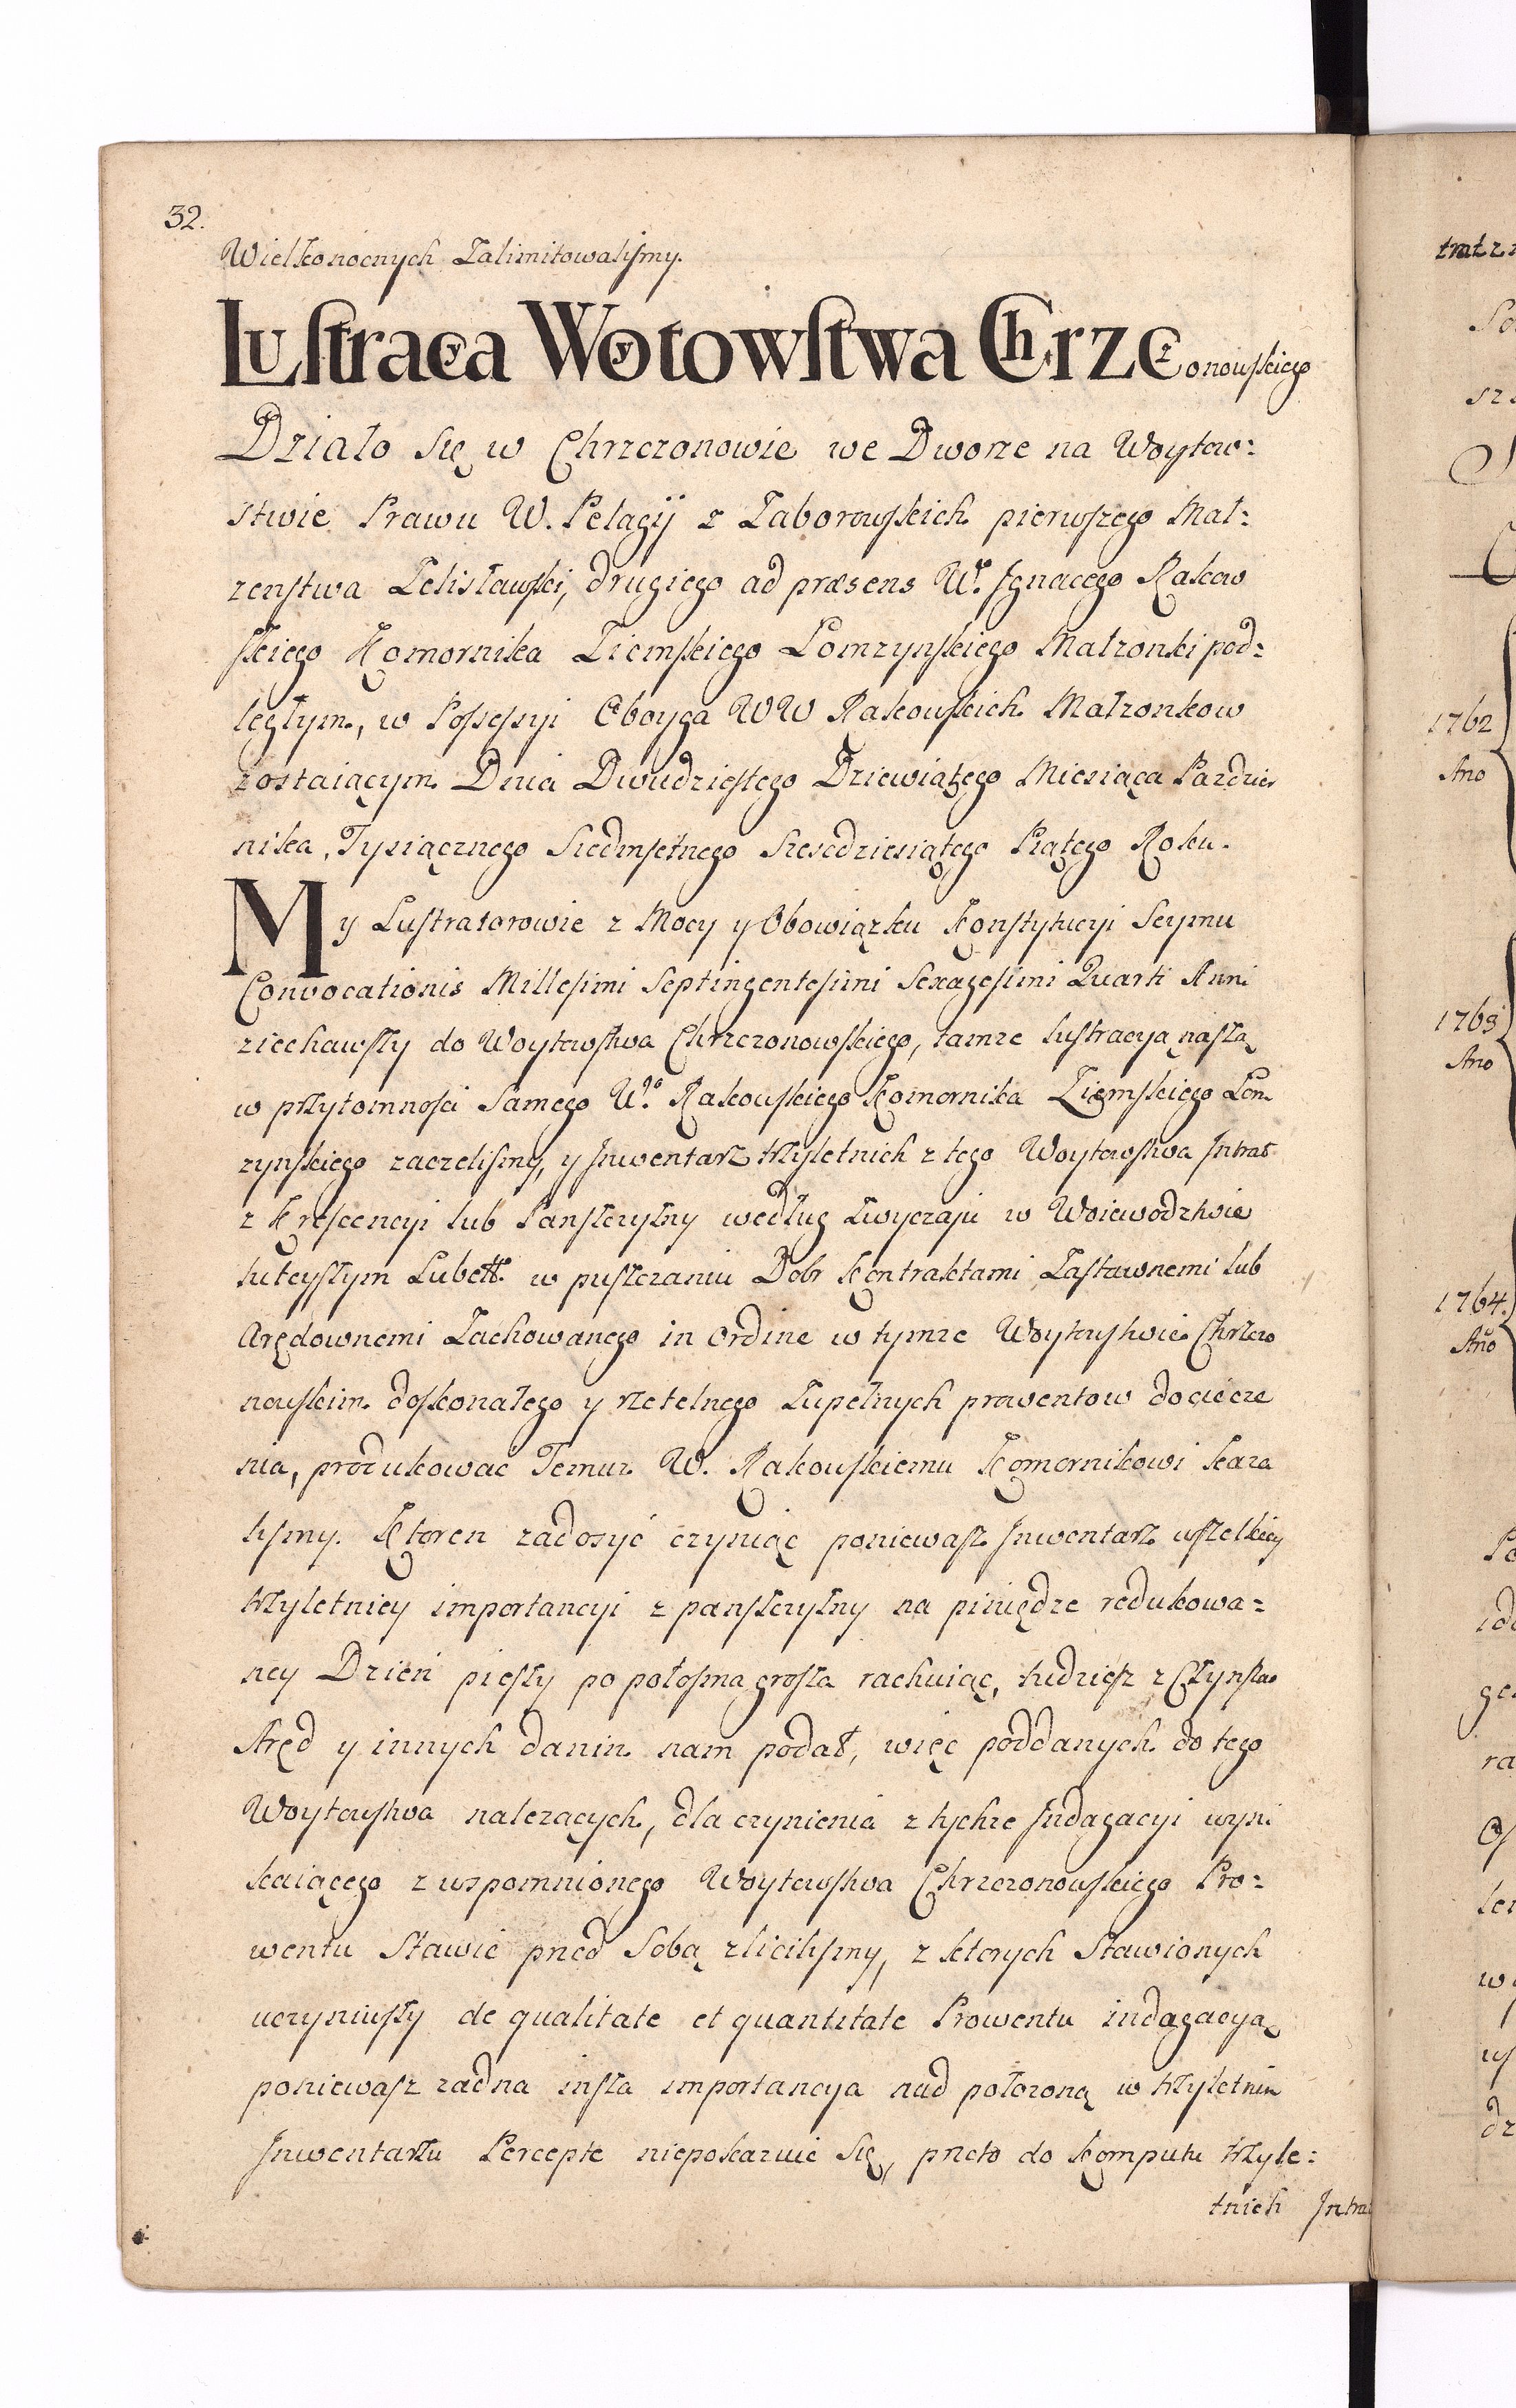 32.
Wielkonocnych Zalimitowaliſmy.
Luſtracya Woytowſtwa Chrzczonowſkiego
Działo Się w Chrzczonowie we Dworze na Woytow:
stwie Prawu W. Pelagÿ z Zaborowſkich pierwſzego Mał:
zenſtwa Zelisławſki, drugiego ad præsens W.go Jgnacego Rakow
ſkiego Komornika Ziemſkiego Łomzynſkiego Małzonki pod:
ległym, w Poſseſsyi Oboyga WW Rakowſkich Małzonkow
zostaiącym Dnia Dwudzieſtego Dziewiątego Miesiąca Pazdzier
nika, Tysiącznego Siedmſetnego Szescdziesiątego Piątego Roku.
My Luſtratorowie z Mocy y Obowiązku Konſtytucyi Seymu
Convocationis Milleſimi Septingenteſimi Sexageſimi Quarti Anni
ziechawſzy do Woytowſtwa Chrzczonowſkiego, tamze luſtracyą naſzą
w przytomnoſci Samego W.go Rakowſkiego Komornika Ziemſkiego Łom
zynſkiego zaczeliſmy, y Jnwentarz trzyletnich z tego Woytowſtwa Jntrat
z Kreſcencyi lub Panſzczyzny według Zwyczaju w Woiewodztwie
tuteyſzym Lubelſk. w puſzczaniu Dobr Kontraktami Zaſtawnemi lub
Arędownemi Zachowanego in Ordine w tymze Woytowſtwie Chrzczo
nowſkim doſkonałego y rzetelnego Zupełnych prowentow dociecze
nia, produkować Temuz W. Rakowſkiemu Komornikowi kaza
liſmy. Ktoren zadosyć czyniąc poniewaſz Jnwentarz wſzelkiey
trzyletniey importancyi z panſzczyzny na piniędze redukowa:
ney Dzień pieſzy po połoſma groſza rachuiąc, tudzieſz z Czynſzow
Aręd y innych danin nam podał, więc poddanych do tego
Woytowſtwa nalezących, dla czynienia z tychze Jndagacyi wyni
kaiącego z wspomnionego Woytowſtwa Chrzczonowſkiego Pro:
wentu Stawić przed Sobą zliciliſmy, z ktorych Stawionych
uczyniwſzy de qualitate et quantitate Prowentu indagacyą
poniewaſz zadna inſza importancya nad połozoną w trzyletnim
Jnwentarzu Percepte niepokazuie Się, przeto do Komputu trzyle:
tnich Jntra
1762
Ano
1763
Ano
1764.
Ano